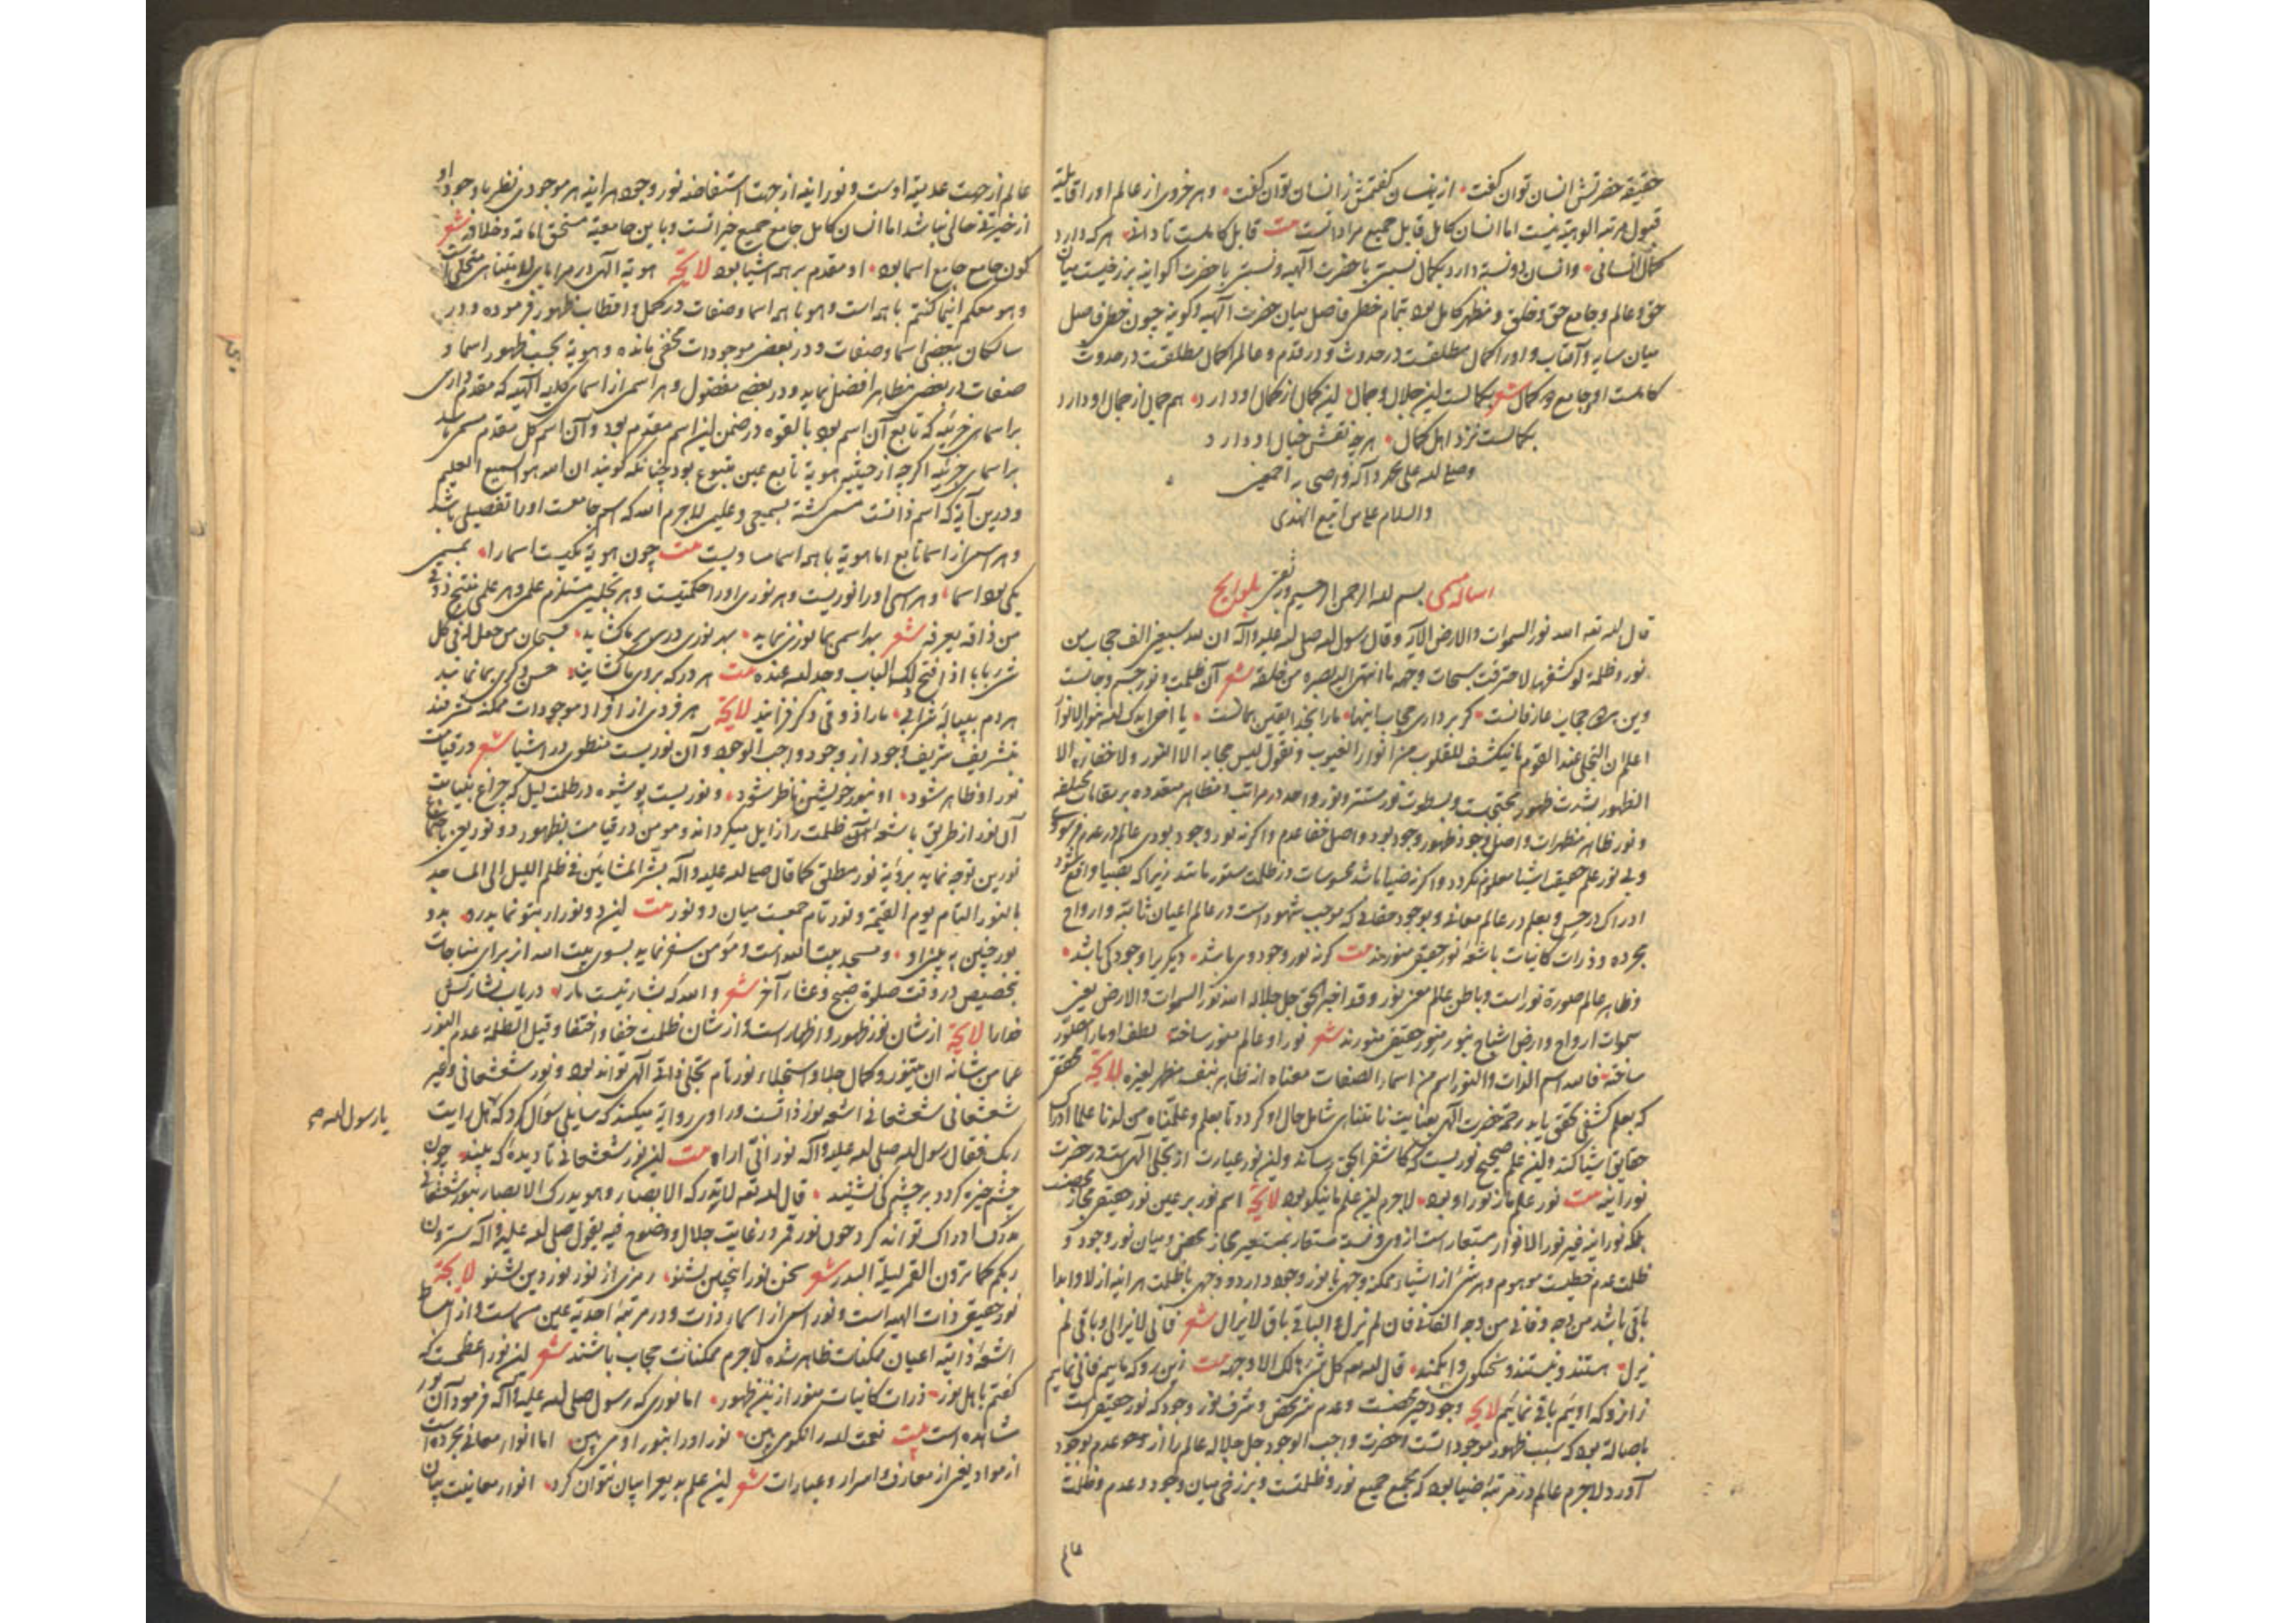 حقیقة حضرتش انسان توان گفت ازین انسان گفتمش زانسان توان گفت و هر فردی از عالم او را قابلیة
قبول مرتبه الوهیة نیست اما انسان کامل قابل جمیع مرادانست بیت قابل کاملست تا دانی هر که دارد
کمال انسانی و انسان دو نسبة دارد بکمال نسبتی با حضرت الهیه و نسبتی با حضرت اکوانیه برزخیست میان
حق و عالم و جامع حق و خلق و مظهر کامل بود بتمام خطی فاصل میان حضرت الهیه و کونیه چون خط فاصل
میان سایه و آفتاب و او را کمال مطلقست در حدوث و در قدم و عالم را کمال مطلقست در حدوث
کاملست او جامع هر کمال شعر بکمالست این جلال و جمال این کمال از کمال او دارد هم جمال از جمال او دارد
بکمالست نزد اهل کمال هر چه نقش خیال او دارد
وصلی الله علی محمد و آله واصحابه اجمعین
والسلام علی من اتبع الهدی
رساله مسمی بسم الله الرحمن الرحیم وبه ثقتی بلوایح
قال الله تعه الله نور السموات والارض الآیه وقال رسول الله صلی الله علیه وآله ان لله سبعین الف حجاب من
نور وظلمة لو کشفها لاحترقت سبحات وجهه ما انتهی الیه بصره من خلقه شعر آن ظلمت و نور جسم و جانست
وین هر دو حجاب عارفانست گر برداری حجاب اینها ما را بخدا یقین همانست یا اخی ایدک الله بنور الانوار
اعلم ان التجلی عند القوم ما ینکشف للقلوب من انوار الغیوب ونقول لیس حجابه الا النور ولا خفاؤه الا
الظهور بشدت ظهور محتجبست و بسطوت نور مستتر و نور واحد در مراتب و مظاهر متعدده بر مقامات مختلفه
و نور ظاهر مظهرات و اصل وجود ظهور وجود بود و اصل خفا عدم و اگر نه نور وجود بودی عالم در عدم فرسودی
و بی نور علم حقیقت اشیا معلوم نگردد و اگر نه ضیا باشد محسوسات در ظلمت مستور ماند زیرا که بضیا واقع شود
ادراک در حس و بعلم در عالم معانی و بوجود حقانی که موجب شهود است در عالم اعیان ثابته و ارواح
مجرده و ذرات کاینات باشعه نور حقیقی منورند بیت گر نه نور وجود وی باشد دیگری را وجود کی باشد
و ظاهر عالم صورة نور است و باطن عالم معنی نور و قد اخبر الحق جل جلاله الله نور السموات والارض یعنی
سموات ارواح و ارض اشباح بنور منور حقیقی منورند شعر نور او عالم منور ساخته لطف او ما را مصور
ساخته فالله اسم الذات والنور اسم من اسماء الصفات معناه الظاهر بنفسه مظهر لغیره لایحة محقق
که بعلم کشفی تحقق یابد رحمة حضرت الهی بعنایت نامتناهی شامل حال او گردد تا بعلم وعلمناه من لدنا علما ادراک
حقایق اشیا کند و این علم صحیح نوریست که مکاشف را بحق رساند و این نور عبارت از تجلی الهی است در حضرت
نورانیه بیت نور علم ما ز نور او بود لاجرم این علم ما نیکو بود لایحة اسم نور بر عین نور حقیقی مجاز محضست
بلکه نورانیة غیر نور الانوار مستعار است از وی و نسبة مستعار بمستعیر مجاز محض و میان نور وجود و
ظلمت عدم خطیست موهوم و هر شئ از اشیاء ممکنه وجهی با نور وجود دارد و وجهی با ظلمت هر اینه ازلا و ابدا
باقی باشد من وجه و فانی من وجه الفانی فان لم یزل والباقی باق لایزال شعر فانی لایزالی و باقی لم
یزل هستند و نیستند و نگویی و ممکنند قال الله تعه کل شئ هالک الا وجهه بیت زین رو که ماییم فانی نماییم
زان رو که اوییم باقی نماییم لایحه وجود خیر محضست و عدم شر محض و شرف نور وجود که نور حقیقی است
باصالة بود که سبب ظهور موجوداتست و حضرت واجب الوجود جل جلاله عالم را از عدم بوجود
آورد لاجرم عالم در مرتبه ضیا بود که مجمع جمیع نور و ظلمتست و برزخی میان وجود و عدم و ظلمت
عالم
عالم از جهت عدمیة اوست و نورانیه از جهت استفاضه نور وجود هر اینه هر موجودی نظر با وجود او
از خیرتی خالی نباشد اما انسان کامل جامع جمیع خیراتست و باین جامعیة مستحق امانة و خلافة شعر
کون جامع جامع اسما بود او مقدم بر همه اشیا بود لایحة هویة الهی در مرایای لایتناهی متجلی است
وهو معکم اینما کنتم با همه است و هو با همه اسما و صفات در کمل و اقطاب ظهور فرموده و در
سالکان ببعضی اسما و صفات و در بعضی موجودات مخفی مانده و هویة بحسب ظهور اسما و
صفات در بعضی مظاهر افضل نماید و در بعضی مفضول و هر اسمی از اسمای کلیه الهیه که مقدم داری
بر اسمای جزئیه که تابع آن اسم بود بالقوه در ضمن این اسم مقدم بود و آن اسم کل مقدم مسمی باشد
بر اسمای جزئیه اگرچه از حیثیه هویة تابع عین متبوع بود چنانکه گویند ان الله هو السمیع العلیم
و درین آیه که اسم ذاتست مسمی گشته بسمیعی و علیمی لاجرم الله که اسم جامعست او را تفصیلی باشد
و هر اسمی از اسما تابع اما هویة با همه اسما مساویست بیت چون هویة یکیست اسما را بمسمی
یکی بود اسما و هر اسمی او را نوریست و هر نوری او را حکمتیست و هر تجلیی مستلزم علمی و هر علمی منتج ذوقی
من ذاقه یعرفه شعر بهر اسمی بما نوری نماید بهر نوری دری بر ما گشاید فسبحان من جعل له فی کل
شئ بابا اذا فتح لک الباب وجد الله عنده بیت هر در که بروی ما گشاید حسن دگری بما نماید
هر دم بپیاله شرابی ما را ذوقی دگر فزاید لایحة هر فردی از افراد موجودات ممکنه مشرفند
بتشریف شریف وجود از وجود واجب الوجود و آن نوریست منطوی در اشیا شعر در قیامت
نور او ظاهر شود او بنور خویشتن ناظر شود و نوریست پوشیده در ظلمت لیل که چراغ بغیابت
آن نور از طریق باشعه آن ظلمت را زایل میگرداند و مومن در قیامت بظهور دو نور یعنی باجتماع
نورین توجه نماید برؤیة نور مطلق کما قال صلی الله علیه وآله بشر المشائین فی ظلم اللیل الی المساجد
بالنور التام یوم القیمة و نور تام جمعست میان دو نور بیت این دو نور ار بتو نماید رو بدو
نور چنین به بینی او و مسجد بیت الله است و مؤمن سفر نماید بسوی بیت الله از برای مناجات
بتخصیص در وقت صلوة صبح و عشاء آخر شعر والله که بشارتیست ما را دریاب بشارتش
خدا را لایحة از شان نور ظهور و اظهار است و از شان ظلمت خفا و اختفا وقیل الظلمة عدم النور
عما من شانه ان یتنور و کمال جلا و استجلاء نور تام تجلی ذاتی الهی تواند بود و نور شعشعانی وغیر
شعشعانی شعشعانی اشعه نور ذاتست و راوی روایة میکند که سایلی سؤال کرد که هل رایت
ربک فقال رسول الله صلی الله علیه وآله نور انی اراه بیت این نور شعشعانی تا دیده که بیند چون
چشم خیره گردد بر چشم کی نشیند قال الله تعه لا تدرکه الابصار وهو یدرک الابصار بنور شعشعانی
مدرک ادراک تواند کرد چون نور قمر در غایت جلال و وضوح فیه یقول صلی الله علیه وآله سترون
ربکم کما ترون القمر لیلة البدر شعر سخن نور اینچنین بشنو رمزی از نور نور دین بشنو لایحة
نور حقیقی ذات الهیه است و نور اسمی از اسماء ذات و در مرتبه احدیة عین مسماست و از انبساط
اشعه ذاتیه اعیان ممکنات ظاهر شده لاجرم ممکنات حجاب باشند شعر این نور اعظمست که
گفتم باهل نور ذرات کاینات منور ازین ظهور اما نوری که رسول صلی الله علیه وآله فرمود آن نور
مشاهده است بیت نعت الله را نکو می بین نور او را بنور او می بین اما انوار معانی مجرده است
از مواد یعنی از معارف و اسرار و عبارات شعر این علم بدیع را بیان نتوان کرد انوار معانیست بیان
یا رسول الله